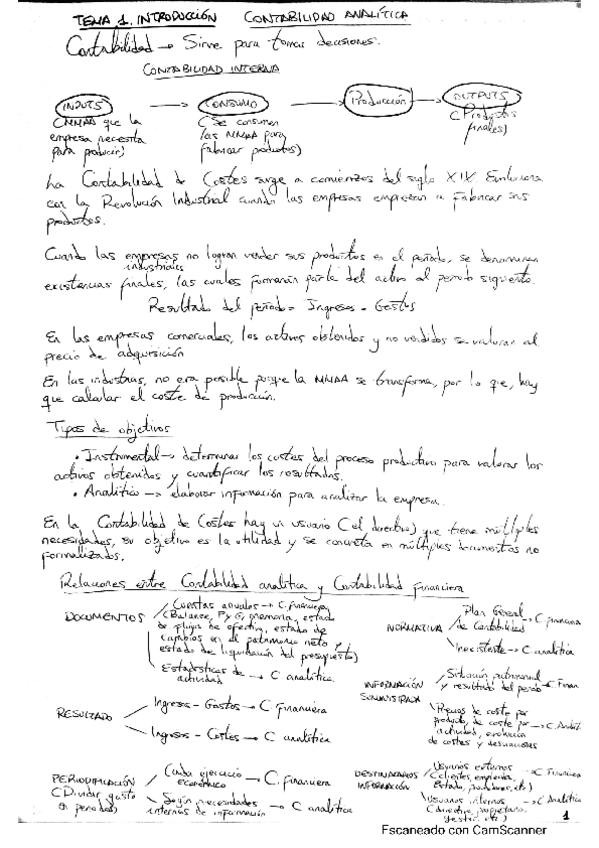 TEMA 1. INTRODUCCIÓN CONTABILIDAD ANALÍTICA
Contabilidad → Sirve para tomar decisiones.
CONTABILIDAD INTERNA
INPUTS → CONSUMO → Producción → OUTPUTS
(MMAA que la empresa necesita para producir)
(Se consumen las MMAA para fabricar productos)
(Productos finales)
La Contabilidad de Costes surge a comienzos del siglo XIX
con la Revolución Industrial cuando las empresas empiezan a fabricar sus
productos.
Cuando las empresas industriales no logran vender sus productos en el periodo, se denominan
existencias finales, las cuales formarán parte del activo al periodo siguiente.
Resultado del periodo = Ingresos - Gastos
En las empresas comerciales, los activos obtenidos y no vendidos se valoran al
precio de adquisición
En las industrias, no era posible porque la MMAA se transforma, por lo que, hay
que calcular el coste de producción.
Tipos de objetivos
• Instrumental → determinar los costes del proceso productivo para valorar los
activos obtenidos y cuantificar los resultados.
• Analítico → elaborar información para analizar la empresa.
En la Contabilidad de Costes hay un usuario (el directivo) que tiene múltiples
necesidades, su objetivo es la utilidad y se concreta en múltiples documentos no
formalizados.
Relaciones entre Contabilidad analítica y Contabilidad Financiera
DOCUMENTOS
Cuentas anuales → C. financiera
(Balance, P y G, memoria, estado
de flujos de efectivo, estado de
cambios en el patrimonio neto y
estado de liquidación del presupuesto)
Estadísticas de actividad → C. analítica
NORMATIVA
Plan General de Contabilidad → C. financiera
Inexistente → C. analítica
RESULTADO
Ingresos - Gastos → C. Financiera
Ingresos - Costes → C. analítica
INFORMACIÓN SUMINISTRADA
Situación patrimonial y resultado del periodo → C. Finan
de coste por
producto, de coste por
actividad, evolución
de costes y desviaciones → C. Analít
PERIODIFICACIÓN
(Dividir gasto en periodos)
Cada ejercicio económico → C. financiera
Según necesidades internas de información → C. analítica
DESTINATARIOS INFORMACIÓN
Usuarios externos → C. Financiera
(clientes,
Estado, proveedores, etc)
Usuarios internos → C. Analítica
(directivo, propietario,
gestor, etc)
1
Escaneado con CamScanner